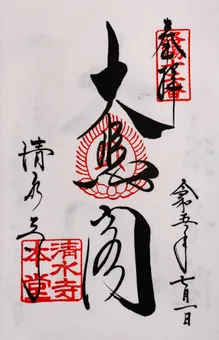 奉拝
大悲閣
令和五年七月一日
清水寺
清水寺
本堂